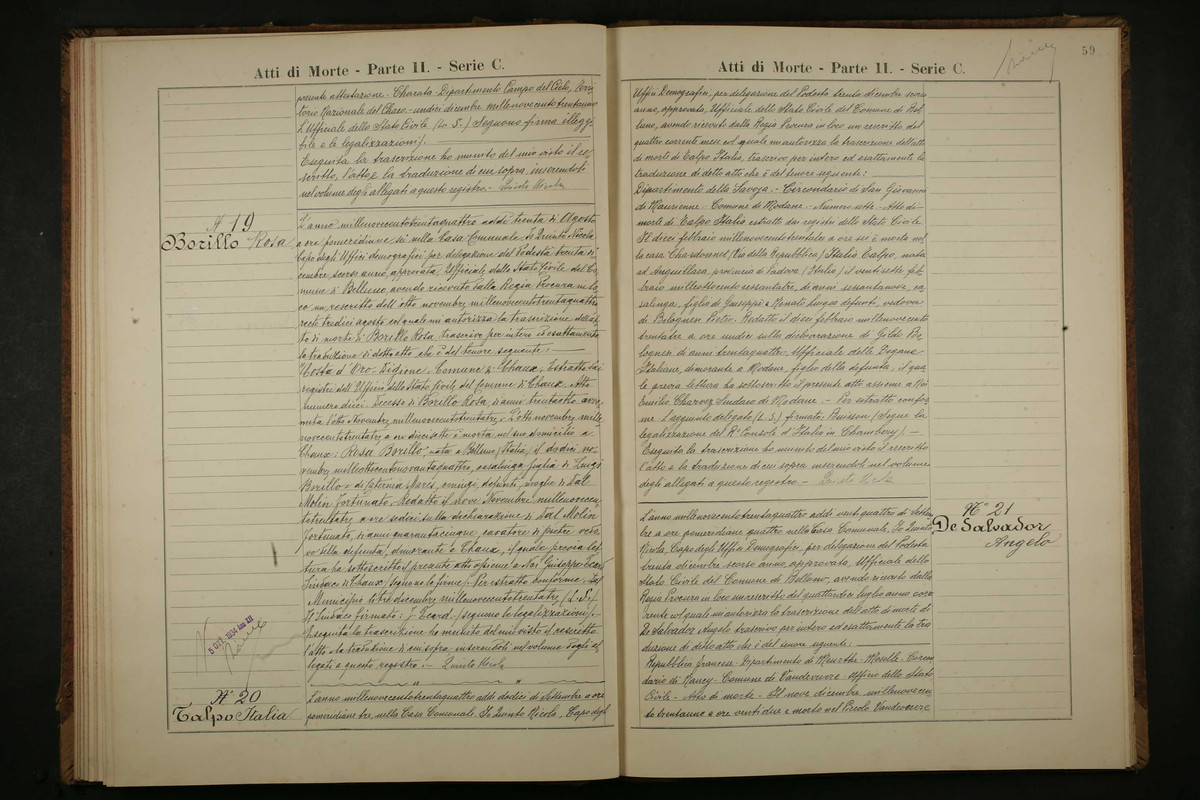 Atti di Morte - Parte II. - Serie C.
presente attestazione - Charata Dipartimento Campo del Cielo, Terri
torio Nazionale del Chaco - undici dicembre millenovecentotrentauno
L'Ufficiale dello Stato Civile (L. S.) Seguono firma illeggi
bile e le legalizzazioni).
Eseguita la trascrizione ho munito del mio visto il re
scritto, l'atto e la traduzione di cui sopra, inserendoli
nel volume degli allegati a questo registro. - Quinto Nicola
N. 19
Borillo Rosa
L'anno millenovecentotrentaquattro addì trenta di Agosto
a ore pomeridiane sei nella Casa Comunale. Io Quinto Nicola
Capo degli Uffici demografici per delegazione del Podestà trenta di
cembre scorso anno, approvata, Ufficiale dello Stato Civile del Co
mune di Belluno, avendo ricevuto dalla Regia Procura in lo
co un rescritto dell'otto novembre millenovecentotrentaquattro
recte tredici agosto col quale mi autorizza la trascrizione dell'at
to di morte di Borillo Rosa, trascrivo per intero ed esattamente
la traduzione di detto atto che è del tenore seguente:
Costa d'Oro - Digione - Comune di Chaux. Estratto dai
registri dell'Ufficio dello Stato Civile del Comune di Chaux. Atto
numero dieci. Decesso di Borillo Rosa, di anni trentotto avve
nuta l'otto Novembre millenovecentotrentatre. L'otto novembre mille
novecentotrentatre a ore diecisette è morta nel suo domicilio a
Chaux: Rosa Borillo, nata a Belluno (Italia) il dodici no
vembre milleottocentonovantaquattro, casalinga figlia di Luigi
Borillo e di Caterina Maris, coniugi, defunti, moglie di Dal
Molin Fortunato. Redatto il nove Novembre millenovecen
totrentatre a ore sedici sulla dichiarazione di Dal Molin
Fortunato, di anni quarantacinque, cavatore di pietre vedo
vo della defunta, dimorante a Chaux, il quale previa let
tura ha sottoscritto il presente atto assieme a Noi Giuseppe Ecard
Sindaco di Chaux (seguono le firme). Per estratto conforme. Dal
Municipio li tre dicembre millenovecentotrentatre (L. S.)
Il Sindaco firmato: J. Ecard. (seguono le legalizzazioni).
Eseguita la trascrizione ho munito del mio visto il rescritto
l'atto e la traduzione di cui sopra, inserendoli nel volume degli al
legati a questo registro. - Quinto Nicola
5 OTT. 1934 Ann XII
N.° 20
Talpo Italia
L'anno millenovecentotrentaquattro addì dodici di Settembre a ore
pomeridiane tre, nella Casa Comunale. Io Quinto Nicola, Capo degli
59
Atti di Morte - Parte II. - Serie C.
Uffici Demografici, per delegazione del Podestà trenta dicembre scorso
anno, approvata, Ufficiale dello Stato Civile del Comune di Bel
luno, avendo ricevuto dalla Regia Procura in loco un rescritto del
quattro corrente mese col quale mi autorizza la trascrizione dell'atto
di morte di Talpo Italia, trascrivo per intero ed esattamente la
traduzione di detto atto che è del tenore seguente:
Dipartimento della Savoja. - Circondario di San Giovanni
di Maurienne - Comune di Modane - Numero sette - Atto di
morte di Talpo Italia estratto dai registri dello Stato Civile
Il dieci febbraio millenovecentotrentatre a ore sei è morta nel
la casa Chardonnet (Via della Repubblica) Italia Talpo, nata
ad Anguillara, provincia di Padova (Italia) il ventisette feb
braio milleottocento sessantatre, di anni sessantanove, ca
salinga, figlia di Giuseppe e Renato Luigia defunti, vedova
di Bolognesi Pietro. Redatto il dieci febbraio millenovecento
trentatre a ore undici sulla dichiarazione di Gildo Bo
lognesi di anni trentaquattro, Ufficiale delle Dogane
Italiane, dimorante a Modane, figlio della defunta, il qua
le previa lettura ha sottoscritto il presente atto assieme a Noi
Emilio Charvoz Sindaco di Modane. - Per estratto confor
me l'aggiunto delegato (L. S.) firmato: Buisson (Segue la
legalizzazione del R.° Console d'Italia in Chambery). -
Eseguita la trascrizione ho munito del mio visto il rescritto
l'atto e la traduzione di cui sopra inserendoli nel volume
degli allegati a questo registro. - Quinto Nicola
N.° 21
De Salvador
Angelo
L'anno millenovecentotrentaquattro addì ventiquattro di Settem
bre a ore pomeridiane quattro nella Casa Comunale. Io Quinto
Nicola, Capo degli Uffici Demografici, per delegazione del Podestà
trenta dicembre scorso anno, approvata, Ufficiale dello
Stato Civile del Comune di Belluno, avendo ricevuto dalla
Regia Procura in loco un rescritto del quattordici luglio anno cor
rente col quale mi autorizza la trascrizione dell'atto di morte di
De Salvador Angelo trascrivo per intero ed esattamente la tra
duzione di detto atto che è del tenore seguente:
Repubblica francese - Dipartimento di Meurthe - Moselle - Circon
dario di Nancy - Comune di Vandoeuvre - Ufficio dello Stato
Civile - Atto di morte - Il nove dicembre millenovecen
to trentanno a ore ventidue è morto nel Piccolo Vandoeuvre